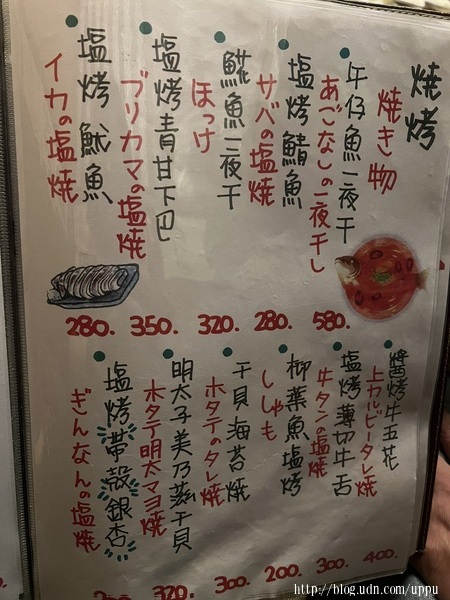 燒烤
焼き物
午仔魚一夜干
あごなしの一夜干し
580.
塩烤鯖魚
サバの塩焼
280.
鯱魚一夜干
ほっけ
320.
塩烤青甘下巴
ブリカマの塩焼
350.
塩烤魷魚
イカの塩焼
280.
醬烤牛五花
上カルビータレ焼
400.
塩烤薄切牛舌
牛タンの塩焼
300.
柳葉魚塩烤
ししゃも
200.
干貝海苔焼
ホタテのタレ焼
300.
明太子美乃滋干貝
ホタテ明太マヨ焼
320.
塩烤帶殼銀杏
ぎんなんの塩焼
http://blog.udn.com/uppu